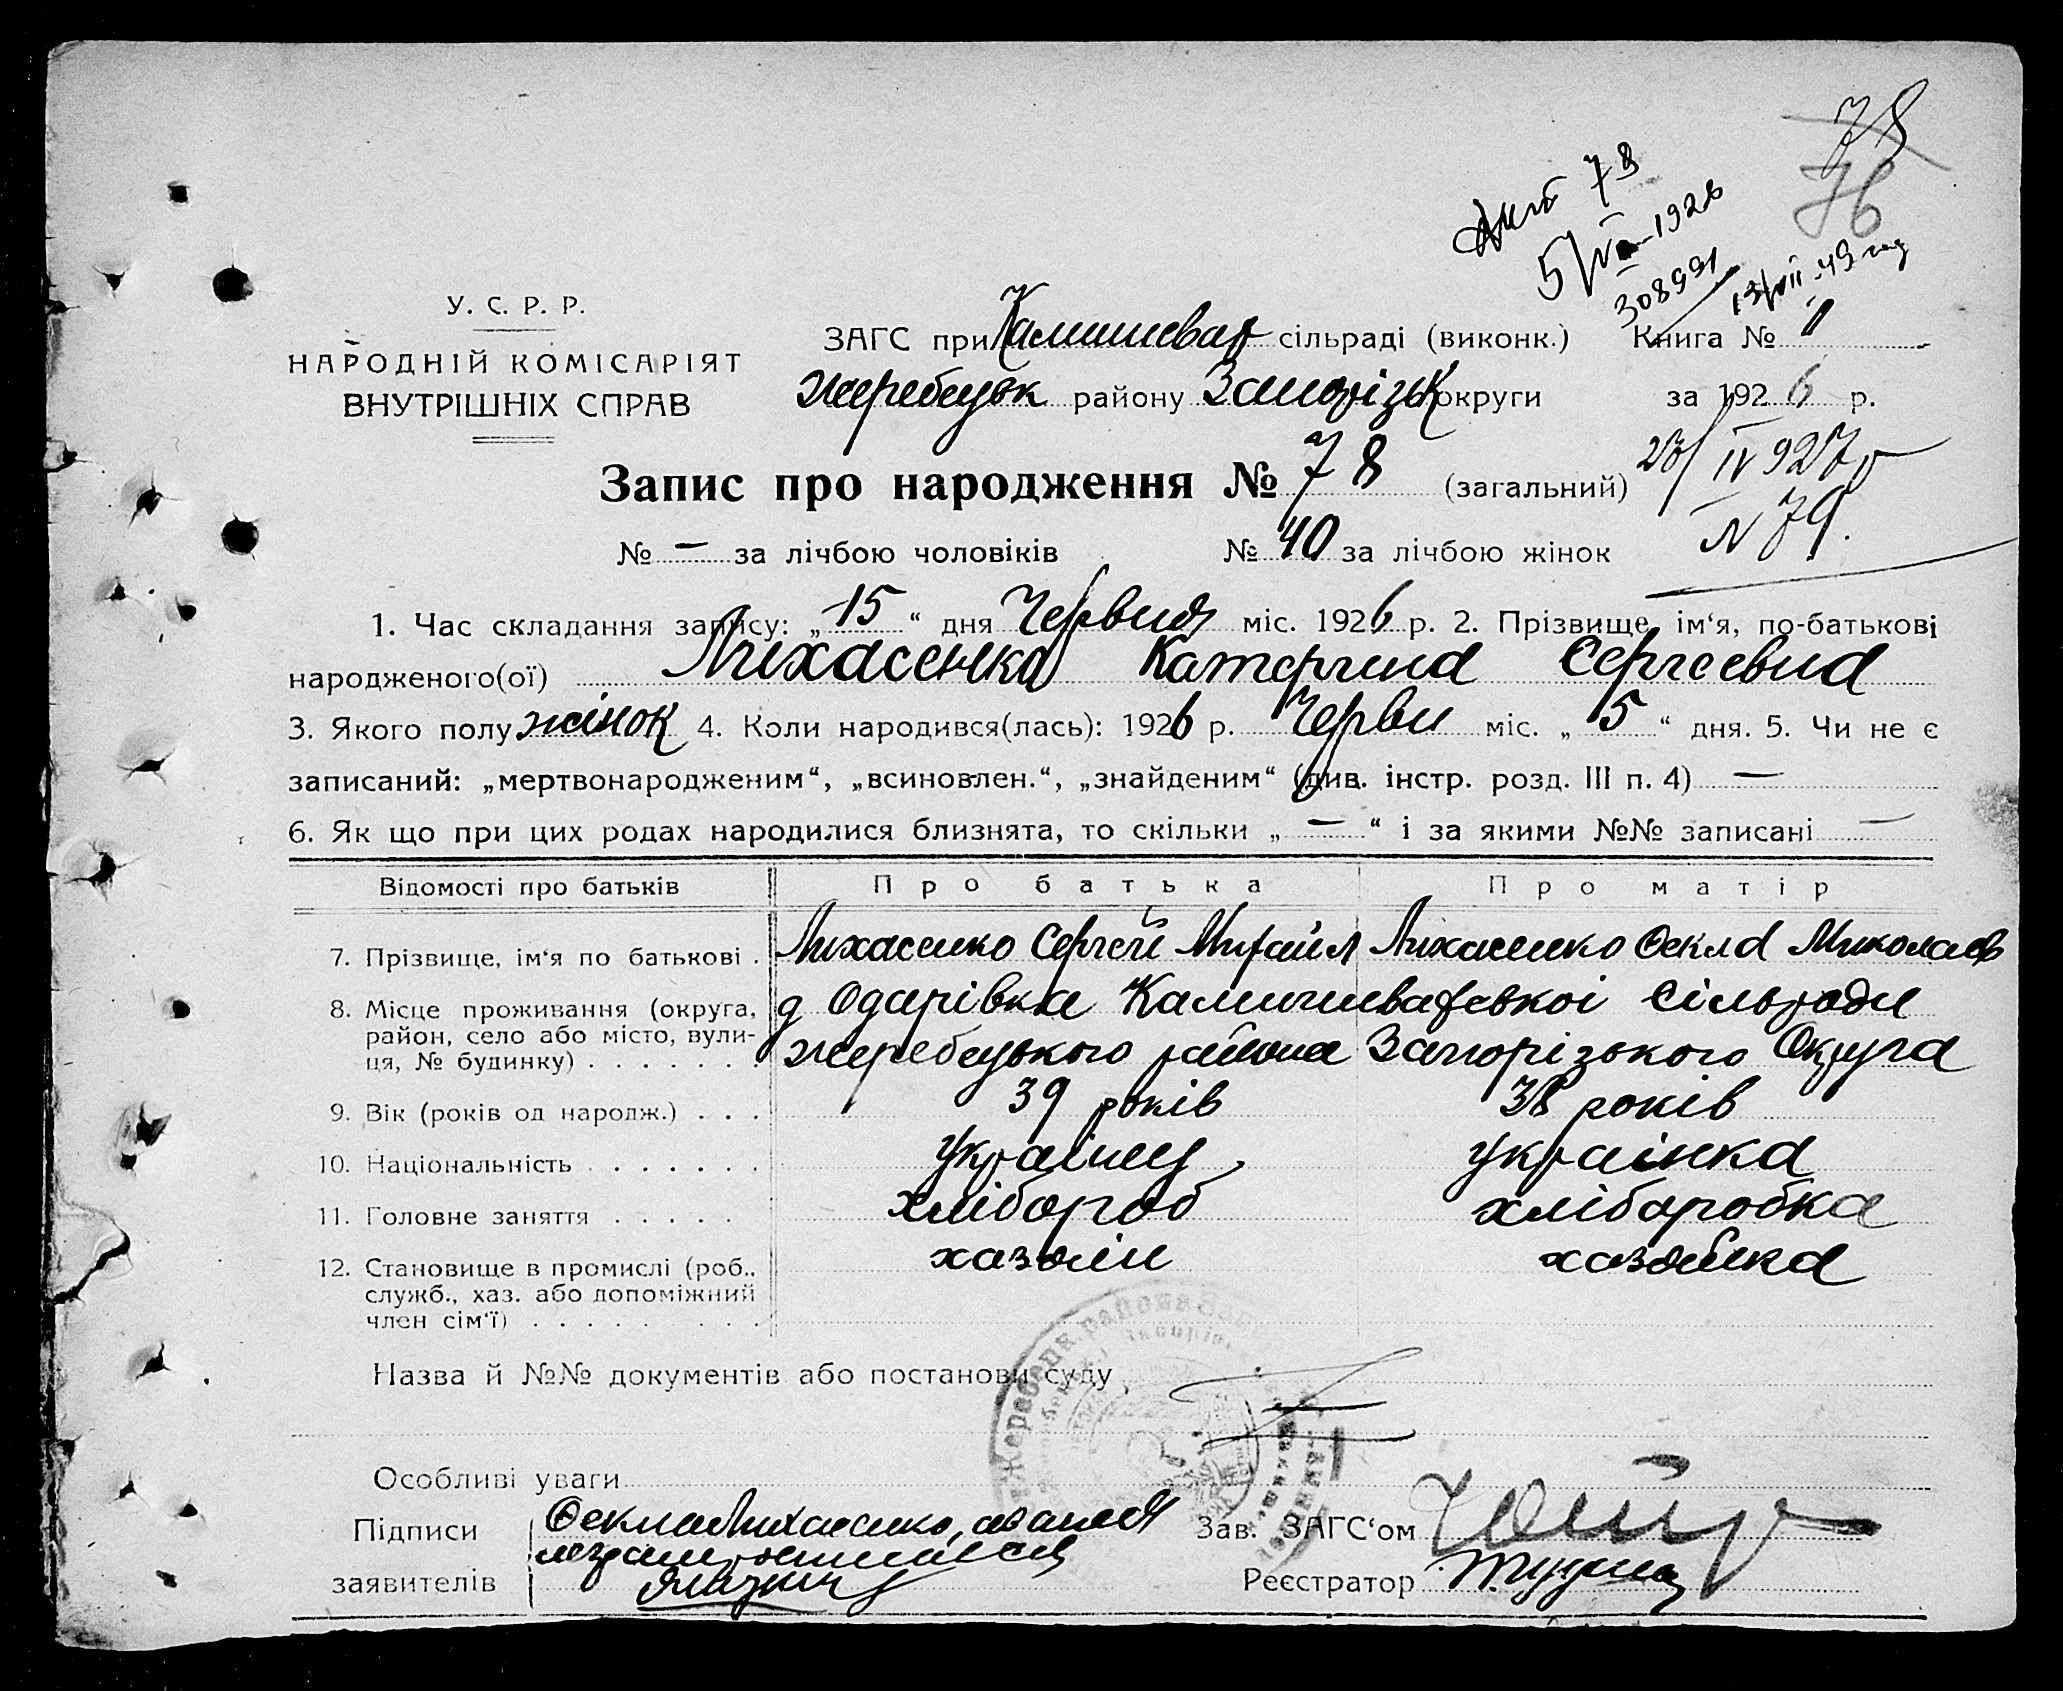 78
76
Акт 78
5/VI-1926
308991
13/VII-49 год
У. С. Р. Р.
НАРОДНІЙ КОМІСАРІЯТ
ВНУТРІШНІХ СПРАВ
ЗАГС при Камишеват сільраді (виконк.) Книга № 1
Жеребецьк району Запорізьк округи за 1926 р.
23/IV 927 г
Запис про народження № 78 (загальний)
N 79.
№ — за лічбою чоловіків № 40 за лічбою жінок
1. Час складання запису: „15“ дня Червця міс. 1926 р. 2. Прізвище, ім‘я, по-батькові
народженого(ої) Лихасенко Катерина Сергеевна
3. Якого полу жінок 4. Коли народився(лась): 1926 р. Черви міс. „5“ дня. 5. Чи не є
записаний: „мертвонародженим“, „всиновлен.“, „знайденим“ (див. інстр. розд. III п. 4) —
6. Як що при цих родах народилися близнята, то скільки „ — “ і за якими №№ записані —
Відомості про батьків Про батька Про матір
7. Прізвище, ім‘я по батькові . Лихасенко Сергей Михайл Лихасенко Фекла Миколаев
8. Місце проживання (округа, д Одарівка Камишеваської Сільради
район, село або місто, вули- Жеребецького района Запорізького Округа
ця, № будинку) . . . . . . .
9. Вік (років од народж.) . . . 39 років 38 років
10. Національність . . . . . . . українец українка
11. Головне заняття . . . . . хлібороб хліборобка
12. Становище в промислі (роб., хазяін хазяйка
служб., хаз. або допоміжний
член сім‘ї) . . . . . . . . .
Назва й №№ документів або постанови суду
Особливі уваги
Підписи Фекла Лихасенко, а за неей
неграмотн
Зав. ЗАГС‘ом
заявителів
Реєстратор